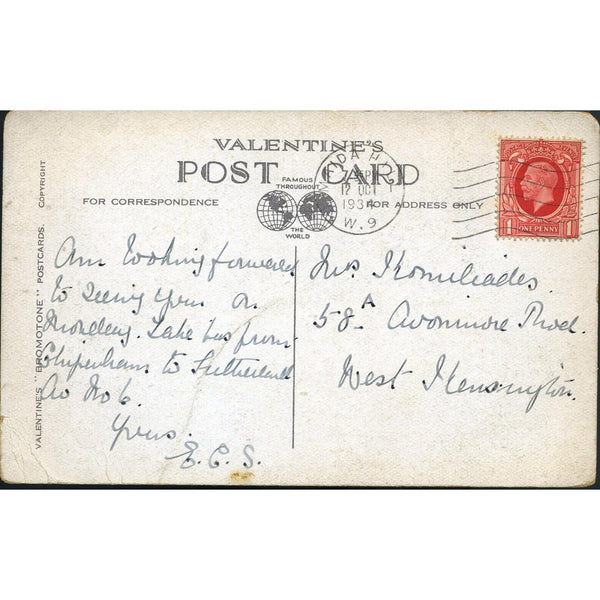 VALENTINE'S
POST CARD
FAMOUS
THROUGHOUT
THE
WORLD
FOR CORRESPONDENCE
FOR ADDRESS ONLY
VALENTINE'S "BROMOTONE" POSTCARDS. COPYRIGHT
IDA H
PM
12 OCT
1934
W.9
1 ONE PENNY 1
Am looking forward
to seeing you on
Monday. Take bus from
Chippenham to Sutherland
Av No 6.
Yours.
E.C.S.
Mrs
58A Avonmore Road.
West Kensington.